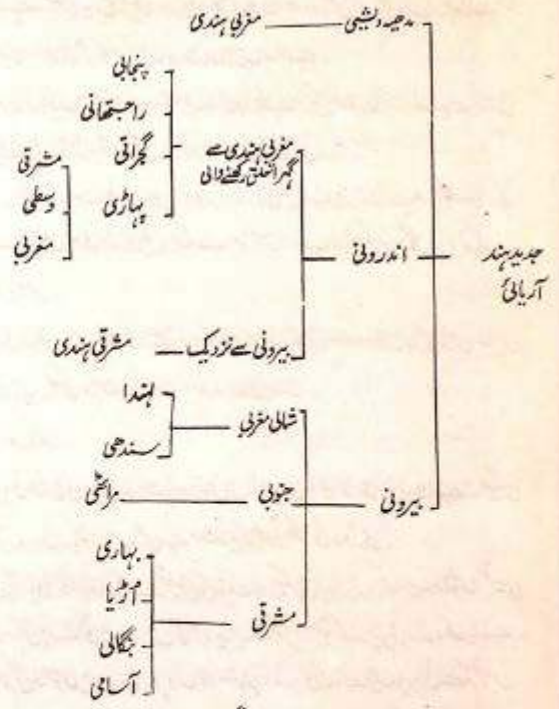 مدھیہ دیشی
مغربی ہندی
جدید ہند
آریائی
اندرونی
مغربی ہندی سے
گہرا تعلق رکھنے والی
پنجابی
راجستھانی
گجراتی
پہاڑی
مشرقی
وسطی
مغربی
بیرونی سے نزدیک
مشرقی ہندی
بیرونی
شمالی مغربی
لہندا
سندھی
جنوبی
مراٹھی
مشرقی
بہاری
اڑیا
بنگالی
آسامی